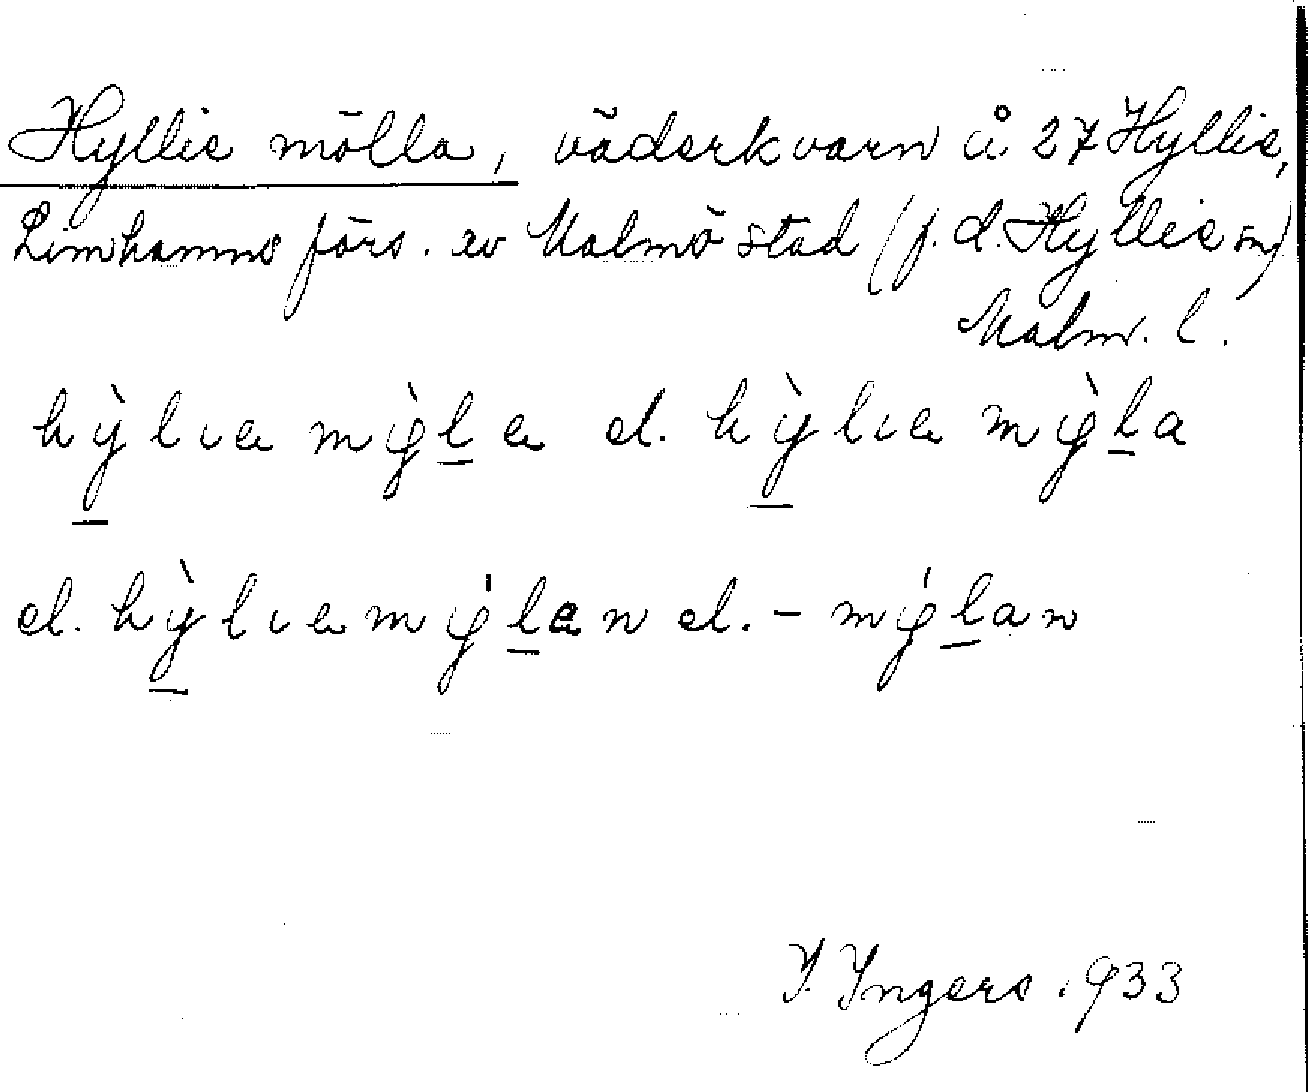 Hyllie mölla, väderkvarn å 27 Hyllie,
Limhamns förs. av Malmö stad (f. d. Hyllie sn)
Malm. l.
hỳlıa mø̀la el. hỳlıa mø̀la
el. hỳlıamǿlan el. - mǿlan
I. Ingers 1933